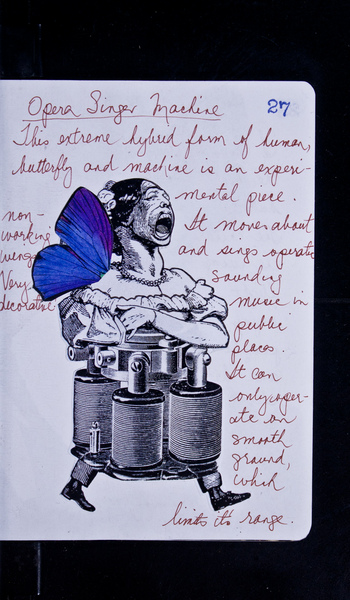 Opera Singer Machine 27
This extreme hybrid form of human,
butterfly and machine is an experi-
mental piece.
It moves about
and sings operatic
sounding
music in
public
places.
It can
only oper-
ate on
smooth
ground,
which
limits its range.
non-
working
wings
Very
decorative